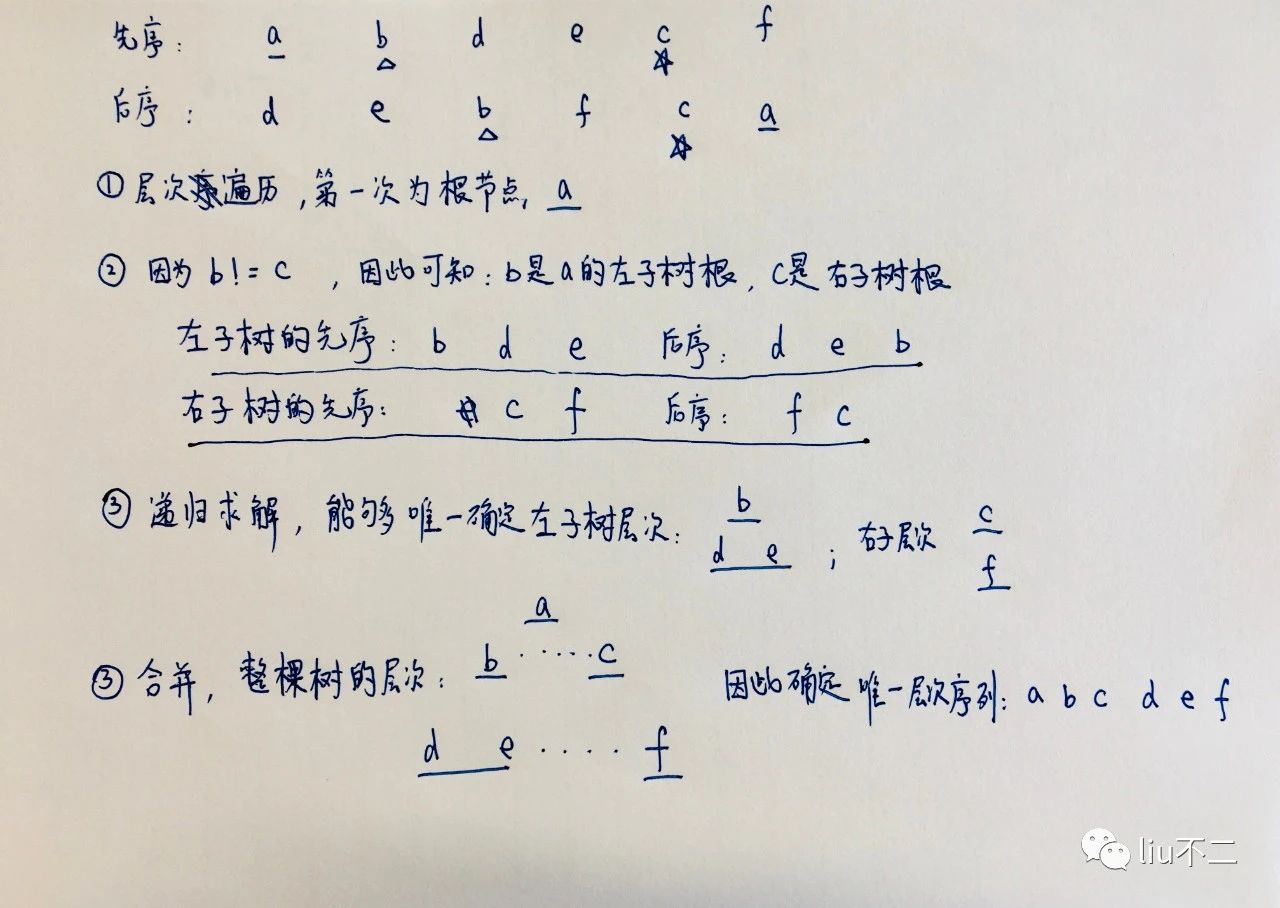 先序： a b d e c f
后序： d e b f c a
① 层次遍历，第一次为根节点 a
② 因为 b!=c ，因此可知：b是a的左子树根，c是右子树根
左子树的先序： b d e 后序： d e b
右子树的先序： c f 后序： f c
③ 递归求解，能够唯一确定左子树层次： b ； 右子层次 c
d e f
a
③ 合并，整棵树的层次： b ····· c 因此确定唯一层次序列：a b c d e f
d e ···· f
liu不二